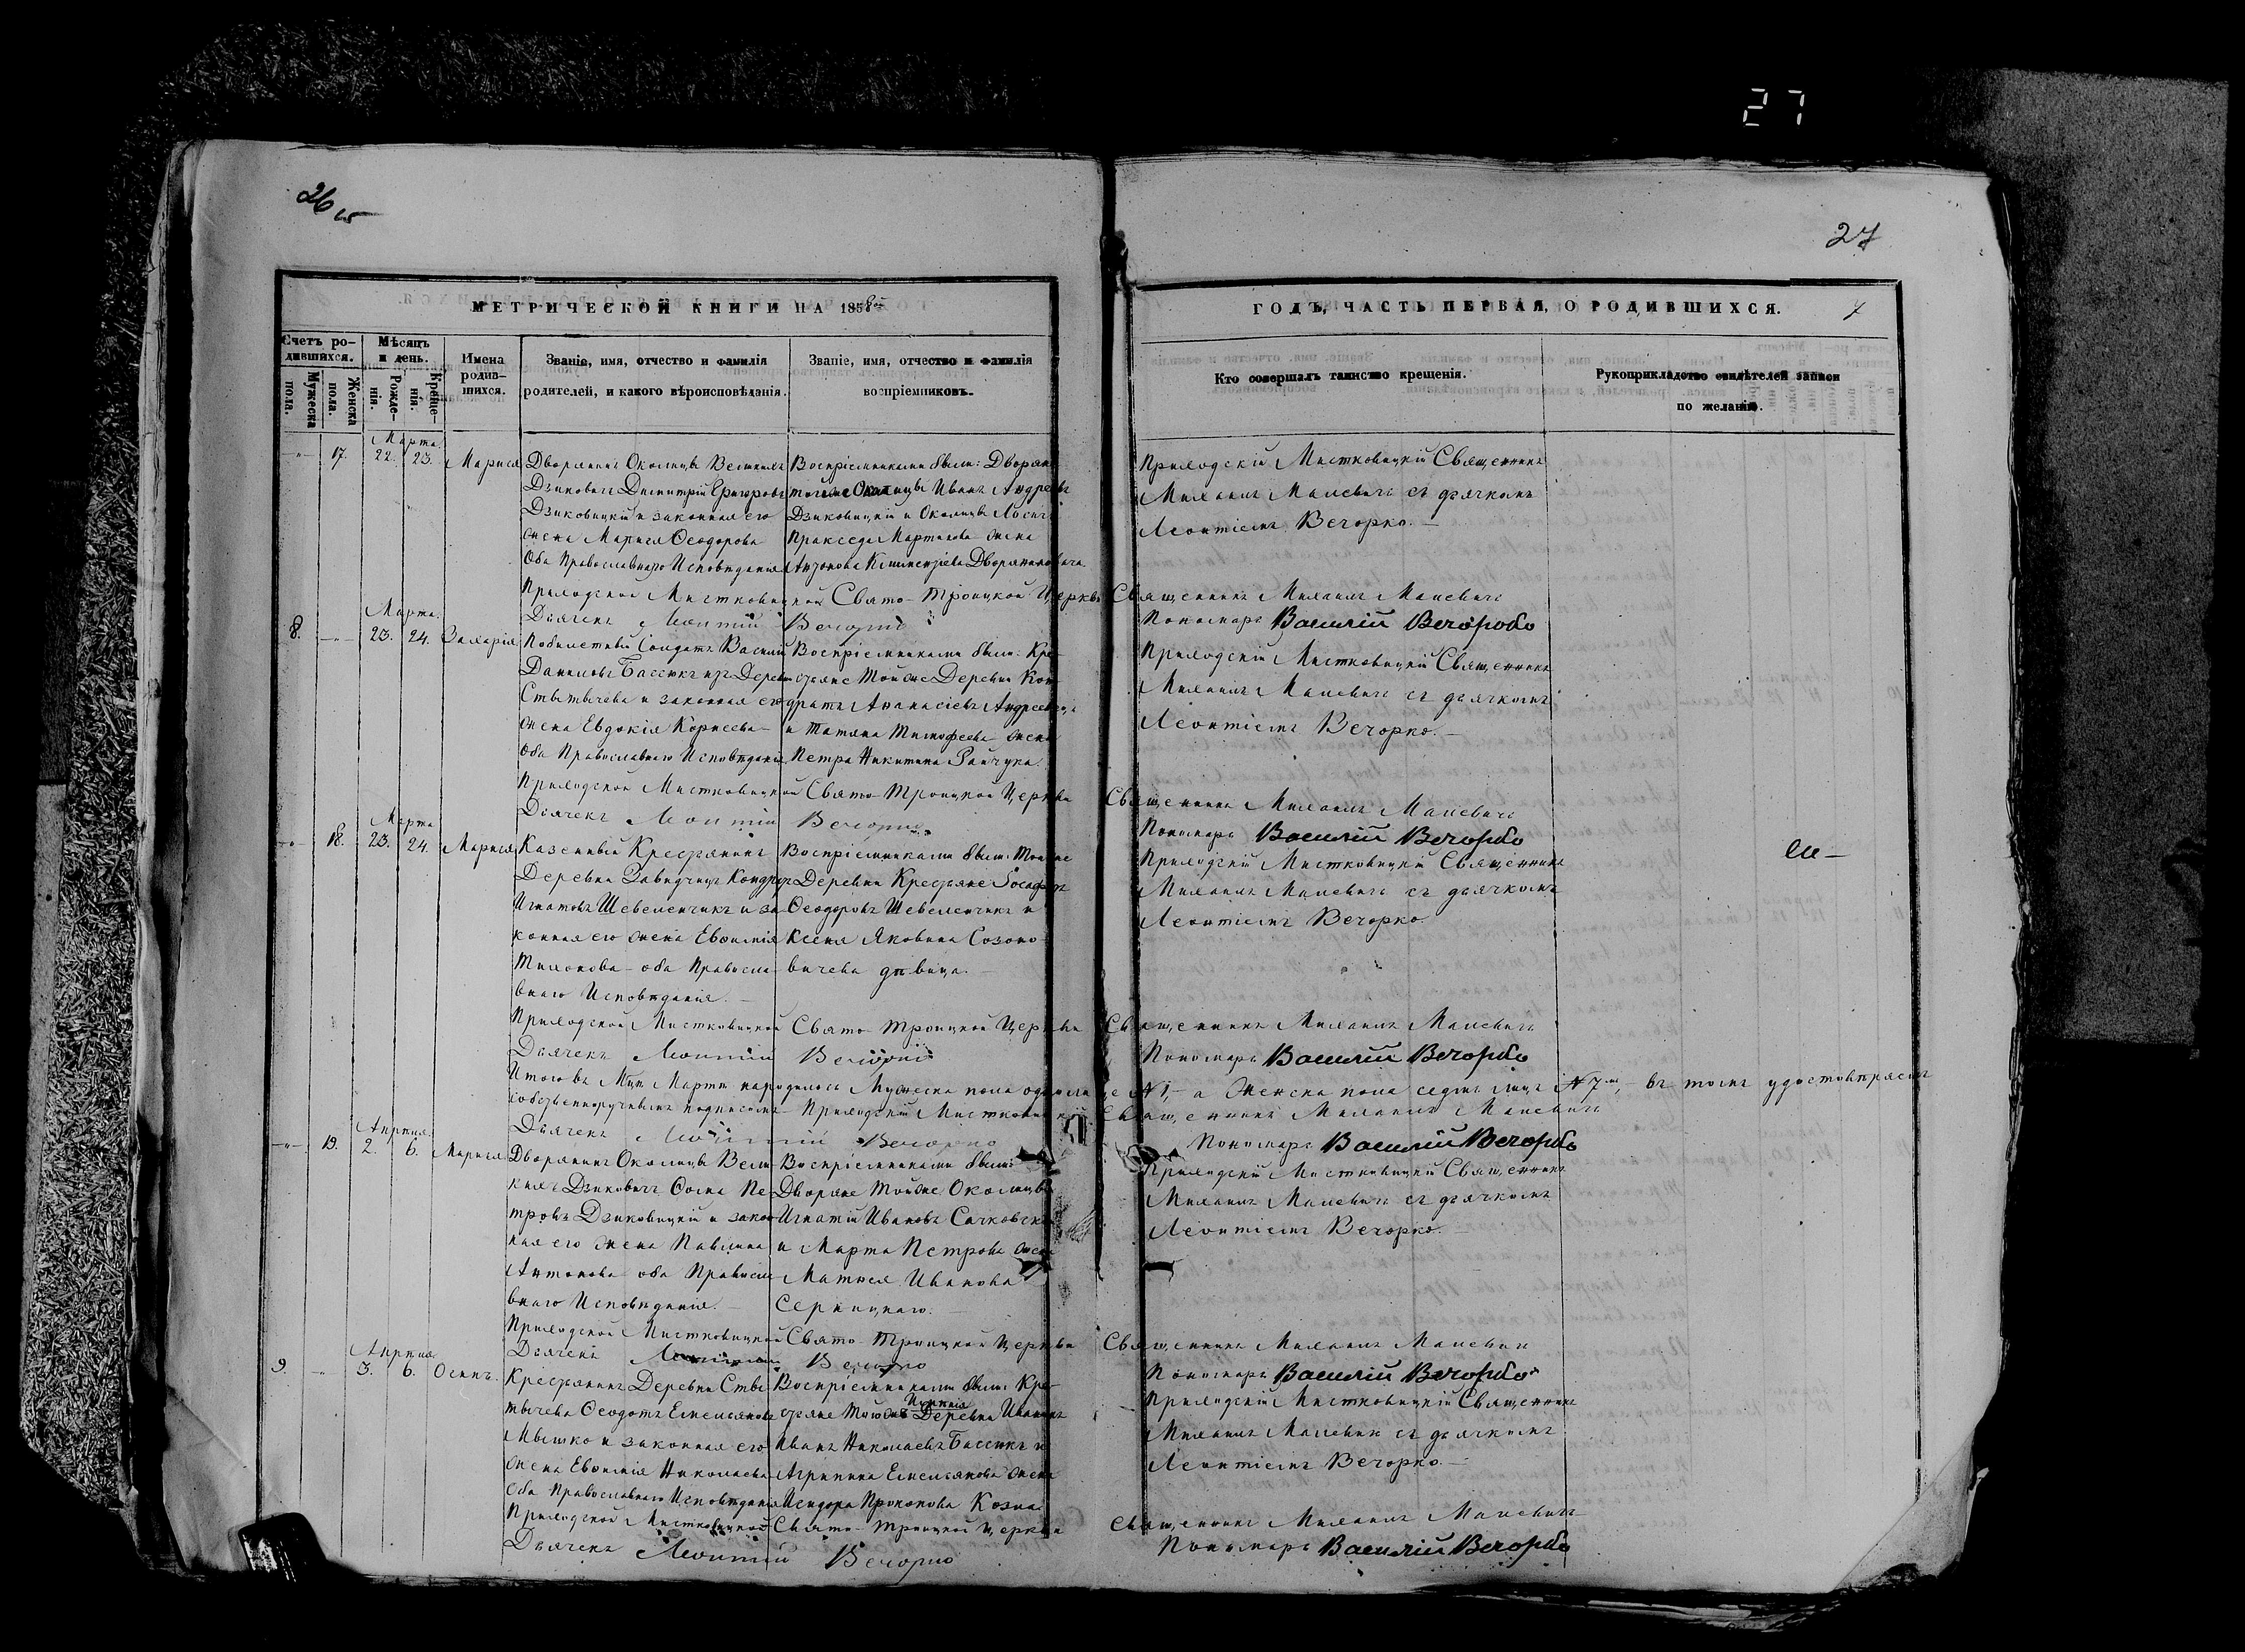 27
26 об
27
МЕТРИЧЕСКОЙ КНИГИ НА 1858й
ГОДЪ, ЧАСТЬ ПЕРВАЯ, О РОДИВШИХСЯ.
7
Счетъ ро-
дившихся.
Мужеска
пола.
Женска
пола.
Мѣсяцъ
и день.
Рожде-
нія.
Креще-
нія.
Имена
родив-
шихся.
Званіе, имя, отчество и фамилія
родителей, и какого вѣроисповѣданія.
Званіе, имя, отчество и фамилія
воспріемниковъ.
Кто совершалъ таинство крещенія.
Рукоприкладство свидѣтелей записи
по желанію.
Марта
17. 22. 23. Марися
Дворянинъ Околицы Великихъ
Дзиковичъ Димитрій Григоровъ
Дзиковицкій и законная его
жена Марися Ѳеодорова
Оба Православнаго Исповѣданія
Воспріемниками были: Дворяне
тойже Околицы Иванъ Андреевъ
Дзиковицкій и Околицы
Пракседа Мартинова жена
Дворяниновича
Приходскій Мистковицкій Священникъ
Михаилъ Малевичъ съ дьячкомъ
Леонтіемъ Вечорко.
Приходской Мистковицкой Свято-Троицкой Церкви Священникъ Михаилъ Малевичъ
Дьячекъ Леонтій Вечорко
Пономарь Василій Вечорко
Марта
8. 23. 24. Захарія
Солдатъ Василій
Даниловъ Басюкъ изъ Деревни
Стытычева и законная его
жена Евдокія Корнеева
Оба Православнаго Исповѣданія
Воспріемниками были: Кре-
стьяне Тойже Деревни Кон-
дратъ Аѳанасіевъ
и Татяна Тимофеева жена
Петра Никитина Райчука.
Приходскій Мистковицкій Священникъ
Михаилъ Малевичъ съ дьячкомъ
Леонтіемъ Вечорко.
Приходской Мистковицкой Свято-Троицкой Церкви Священникъ Михаилъ Малевичъ
Дьячекъ Леонтій Вечорко
Пономарь Василій Вечорко
Марта
18. 23. 24. Марися
Казенный Крестянинъ
Деревни Завидчицъ Кондратъ
Игнатовъ Шевеленчикъ и за-
конная его жена Евѳимія
Тихонова оба Правосла-
внаго Исповѣданія.
Воспріемниками были: Тойже
Деревни Крестяне Іосафатъ
Ѳеодоровъ Шевеленчикъ и
Ксеня Яковина Созоно-
вичева дѣвица.
Приходскій Мистковицкій Священникъ
Михаилъ Малевичъ съ дьячкомъ
Леонтіемъ Вечорко
Приходской Мистковицкой Свято-Троицкой Церкви Священникъ Михаилъ Малевичъ
Дьячекъ Леонтій Вечорко
Пономарь Василій Вечорко
Итого въ Мцѣ Мартѣ народилось Мужеска пола одно лице №1, а Женска пола седмъ лицъ №7м, въ томъ удостовѣряемъ
собственноручнымъ подписомъ Приходскій Мистковицкій Священникъ Михаилъ Малевичъ
Дьячекъ Леонтій Вечорко
Пономарь Василій Вечорко
Апрѣля
19. 2. 6. Марися
Дворянинъ Околицы Вели-
кихъ Дзиковичъ Ѳома Пе-
тровъ Дзиковицкій и закон-
ная его жена Павлина
Антонова оба Правосла-
внаго Исповѣданія.
Воспріемниками были:
Дворяне Тойже Околицы
Игнатій Ивановъ Сачковскій
и Марта Петрова жена
Матѳея Иванова
Серницкаго.
Приходскій Мистковицкій Священникъ
Михаилъ Малевичъ съ дьячкомъ
Леонтіемъ Вечорко.
Приходской Мистковицкой Свято-Троицкой Церкви Священникъ Михаилъ Малевичъ
Дьячекъ Леонтій Вечорко
Пономарь Василій Вечорко
Апрѣля
9. 3. 6. Осипъ.
Крестянинъ Деревни Сты-
тычева Ѳеодотъ Емельяновъ
Мышко и законная его
жена Евѳимія Николаева
Оба Православнаго Исповѣданія
Воспріемниками были: Кре-
стяне Тойже Деревни
Иванъ Николаевъ Басюкъ и
Агрипина Емельянова жена
Исидора Прокопова Козла
Приходскій Мистковицкій Священникъ
Михаилъ Малевичъ съ дьячкомъ
Леонтіемъ Вечорко.
Приходской Мистковицкой Свято-Троицкой Церкви Священникъ Михаилъ Малевичъ
Дьячекъ Леонтій Вечорко
Пономарь Василій Вечорко